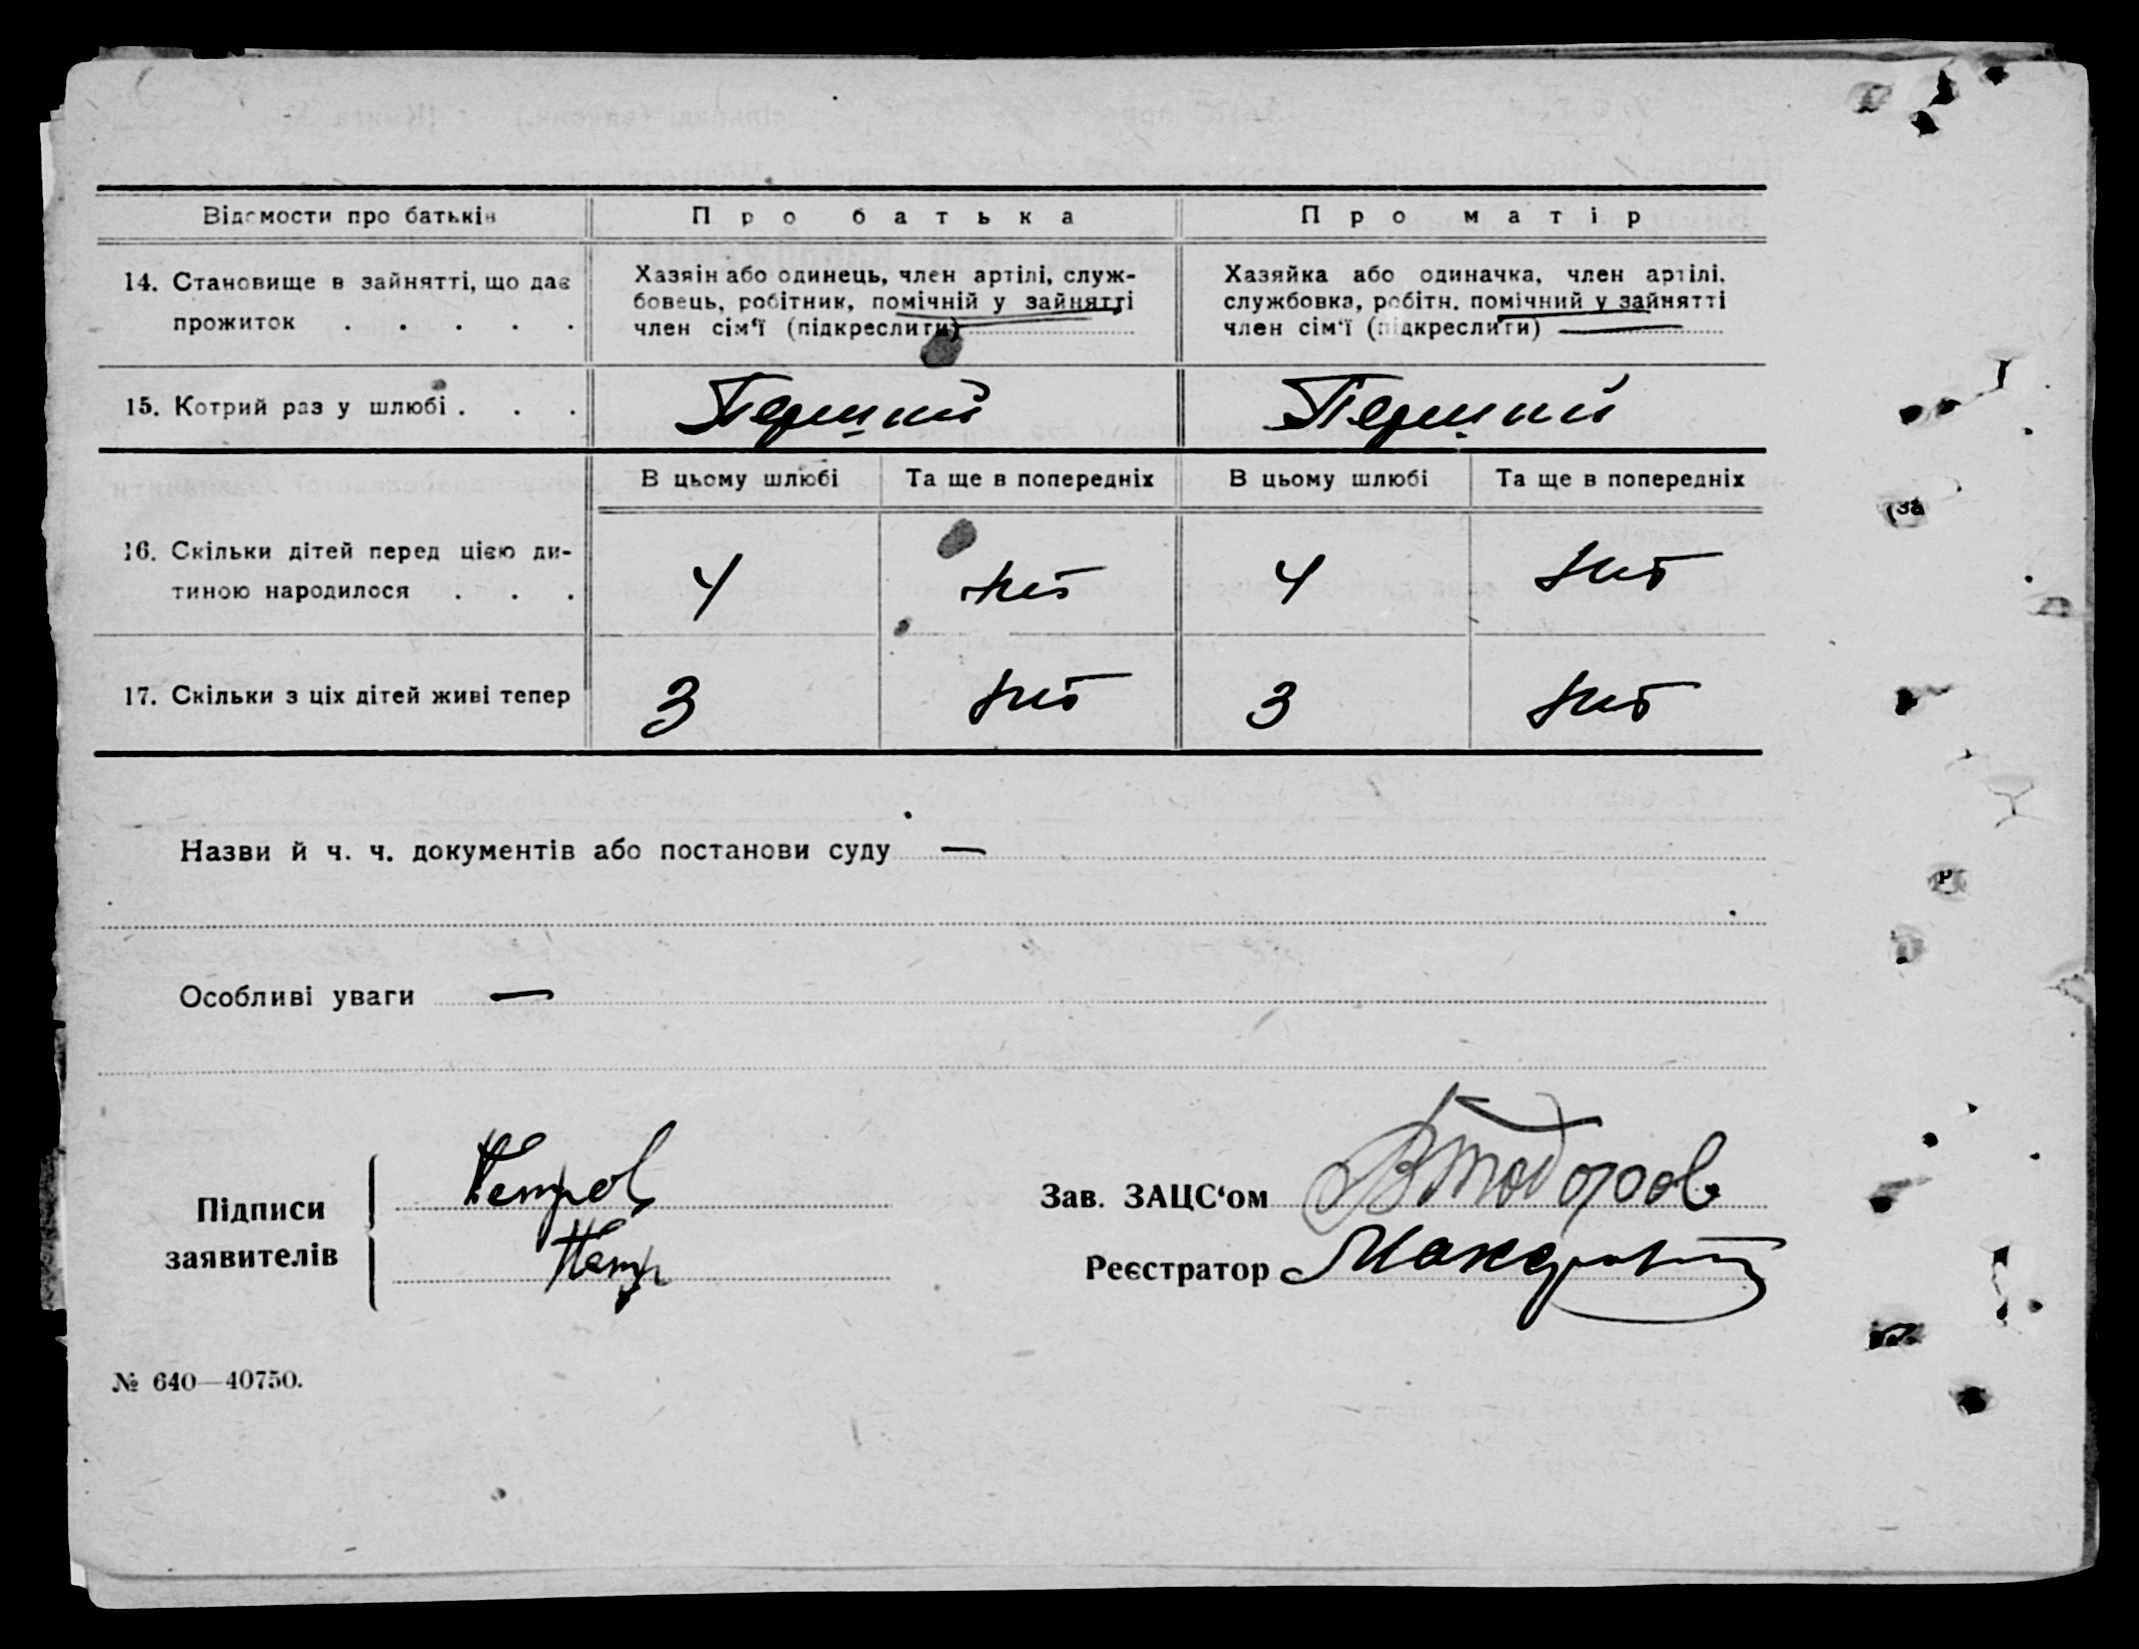 Відомости про батьків
Про батька
Про матір
14. Становище в зайнятті, що дає
прожиток . . . . .
Хазяін або одинець, член артілі, служ-
бовець, робітник, помічній у зайнятті
член сім‘ї (підкреслити)
Хазяйка або одиначка, член артілі,
службовка, робітн. помічний у зайнятті
член сім‘ї (підкреслити) —
15. Котрий раз у шлюбі . . .
Перший
Перший
В цьому шлюбі
Та ще в попередніх
В цьому шлюбі
Та ще в попередніх
16. Скільки дітей перед цією ди-
тиною народилося . . .
4
4
17. Скільки з ціх дітей живі тепер
3
3
Назви й ч. ч. документів або постанови суду —
Особливі уваги —
Підписи
заявителів
Петров
Петр
Зав. ЗАЦС‘ом
ВТодоров
Реєстратор
№ 640—40750.